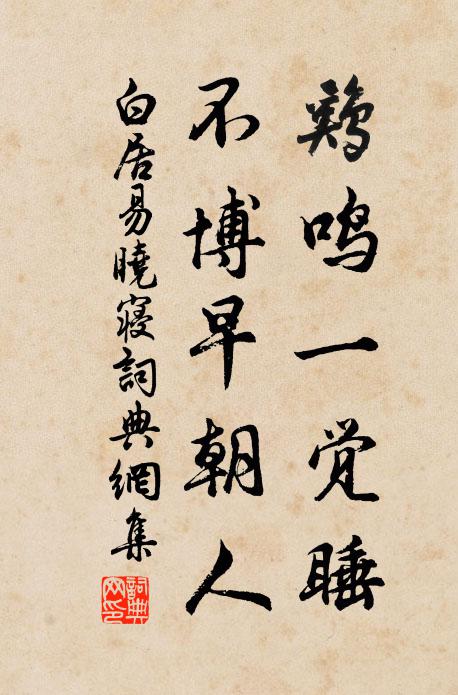 鷄鸣一觉睡
不博早朝人
白居易曉寝詞典網集
詞典网印